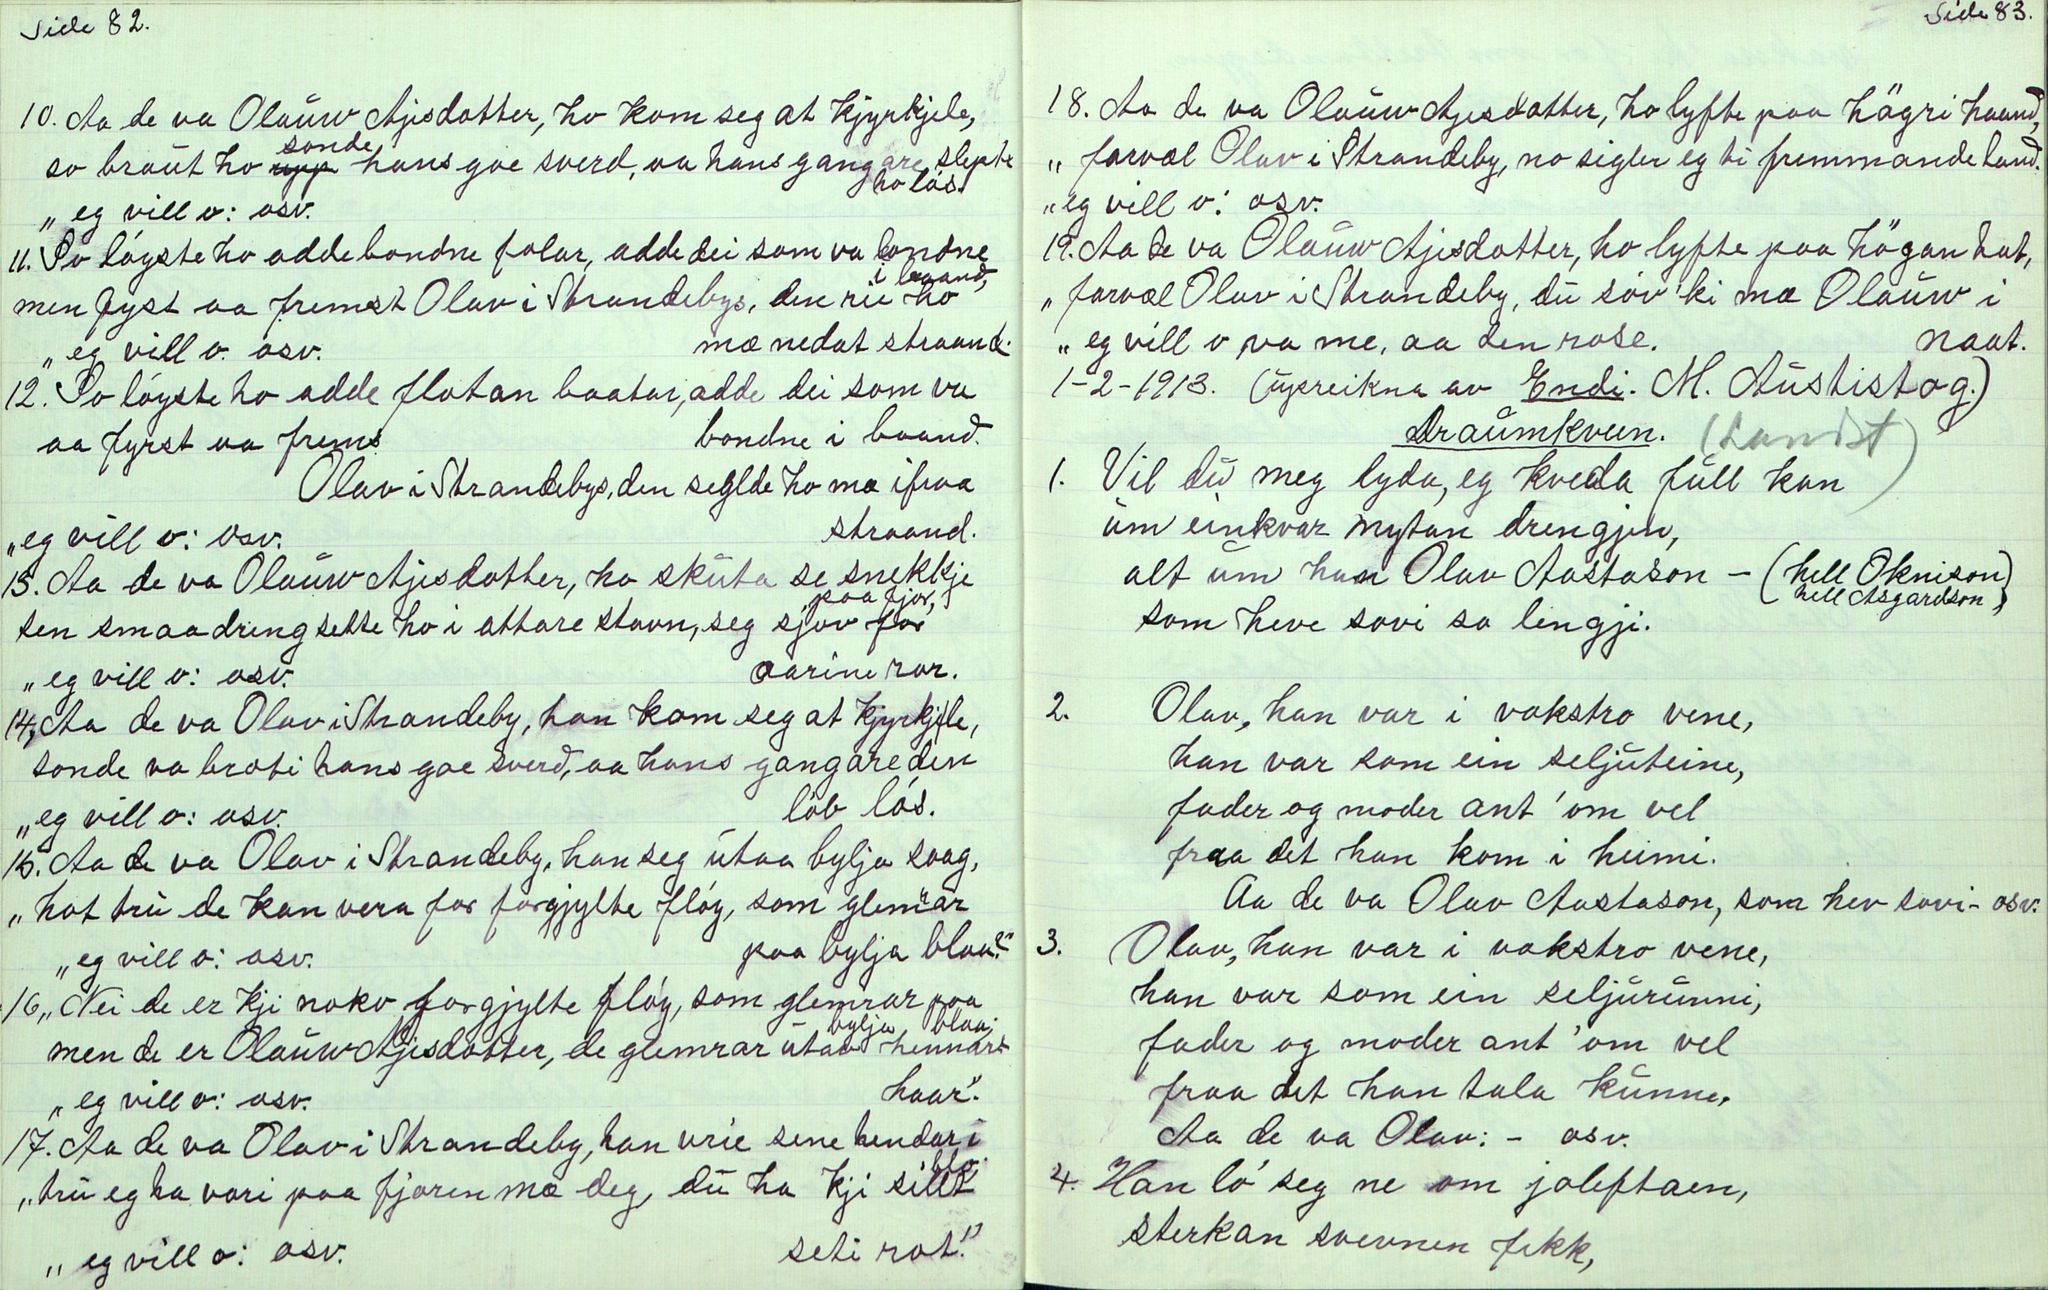 Side 82.
10. Aa de va Olauw Ajisdotter, ho kom seg at kjyrkjele,
so braut ho sonde hans goe sverd, aa hans gangare slepte
ho lós.
„eg vill o: osv.
11. So lóyste ho adde bondne folar, adde dei som va bondne
i baand,
men fyst aa fremst Olav i Strandebys, den rie ho
„eg vill o. osv. mæ nedat straand.
12. So lóyste ho adde flotan baatar, adde dei som va
aa fyrst aa frems bondne i baand.
Olav i Strandebys, den seglde ho mæ ifraa
„eg vill o: osv. straand.
13. Aa de va Olauw Ajisdotter, ho skuta se snekkje
paa fjor,
sen smaadreng sette ho i attare stavn, seg sjov for
„eg vill o: osv. aarine ror.
14. Aa de va Olav i Strandeby, han kom seg at kjyrkjele,
sonde va broti hans goe sverd, aa hans gangare den
„eg vill o: osv. lób lós.
15. Aa de va Olav i Strandeby, han seg utaa bylja saag,
„hot tru de kan vera for forgjylte flóy, som glemrar
„eg vill o: osv. paa bylja blaa?"
16. „Nei de er kji noko forgjylte flóy, som glemrar paa
bylja blaa;
men de er Olauw Ajisdotter, de glemrar utav hennars
„eg vill o: osv. haar."
17. Aa de va Olav i Strandeby, han vrie sine hendar i
blo.
„tru eg ha vori paa fjoren mæ deg, du ha kji sillt
„eg vill o: osv. seti rot."
Side 83.
18. Aa de va Olauw Ajesdotter, ho lyfte paa högri haand,
„farvæl Olav i Strandeby, no sigler eg ti fremmande land.
„eg vill o: osv.
19. Aa de va Olauw Ajisdotter, ho lyfte paa högan hat,
„farvæl Olav i Strandeby, du sóv 'ki mæ Olauw i
„eg vill o va me, aa den rose. naat.
1-2-1913. (uppreikna av Endi. M. Austistog.)
Draumkvein. (Landst)
1. Vil du meg lyda, eg kveda full kan
um einkvar nytan drengjen,
alt um han Olav Aastason – (hell Oknison)
hell Asgardson)
som heve sovi so lengji.
2. Olav, han var i vokstro vene,
han var som ein seljuteine,
fader og moder ant 'om vel
fraa det han kom i heimi.
Aa de va Olav Aastason, som hev sovi- osv.
3. Olav, han var i vokstro vene,
han var som ein seljurunni,
fader og moder ant 'om vel
fraa det han tala kunne.
Aa de va Olav: - osv.
4. Han ló seg ne om joleftaen,
sterkan svevnen fekk,